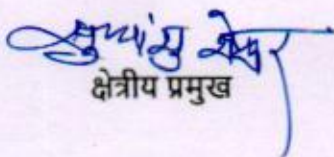 सुधांशु शेखर
क्षेत्रीय प्रमुख